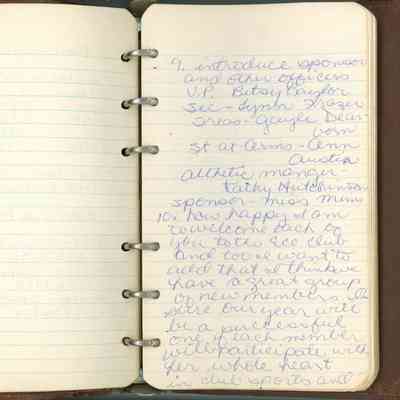 9. introduce sponsor
and other officers
V.P. Betsy Taylor
Sec - Lynn Frazer
Treas - Gayle Dear-
born
St at Arms - Ann
Austin
Athletic manager -
Kathy Hutchinson
sponsor - Miss Mims
10. how happy I am
to welcome each of
you to the club
and too I want to
add that I think we
have a great group
of new members.
sure our year will
be a successful
one if each member
will participate with
her whole heart
in club sports and